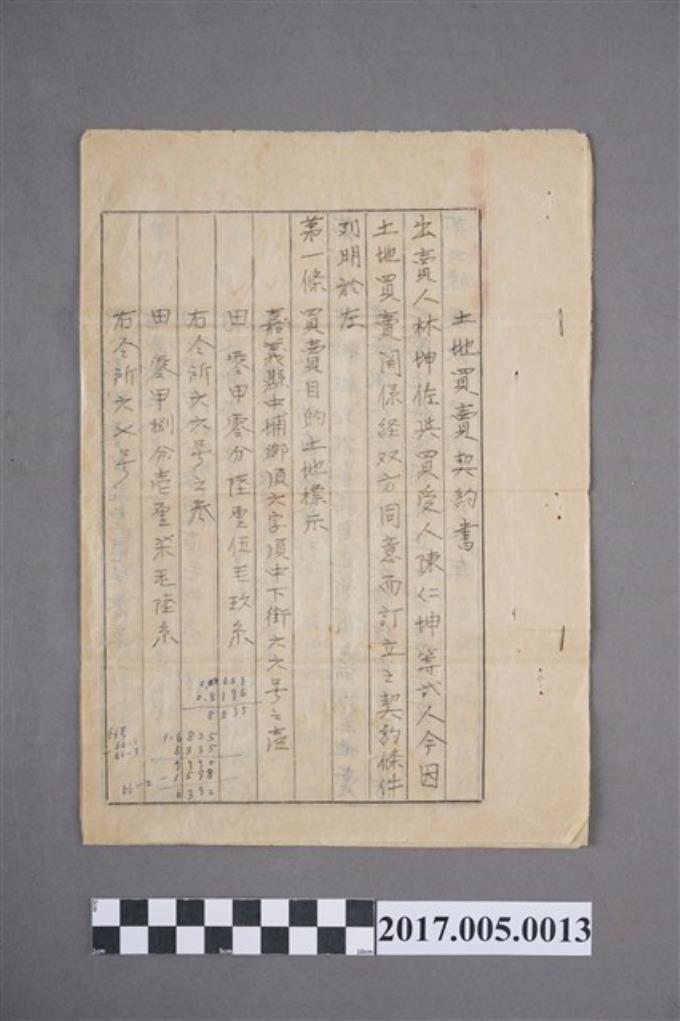 土地買賣契約書
出賣人林坤佐共買受人陳仁坤等弍人今因
土地買賣関係経双方同意而訂立之契約條件
列明於左
第一條 買賣目的土地標示
嘉義縣中埔鄉頂六字頂中下街六六号之壱
田 零甲零分陸厘伍毛玖糸
右仝所六六号之叁
田 零甲捌分壱厘柒毛陸糸
右仝所六七号
0.8176
8835
1.6825
8835
2017.005.0013